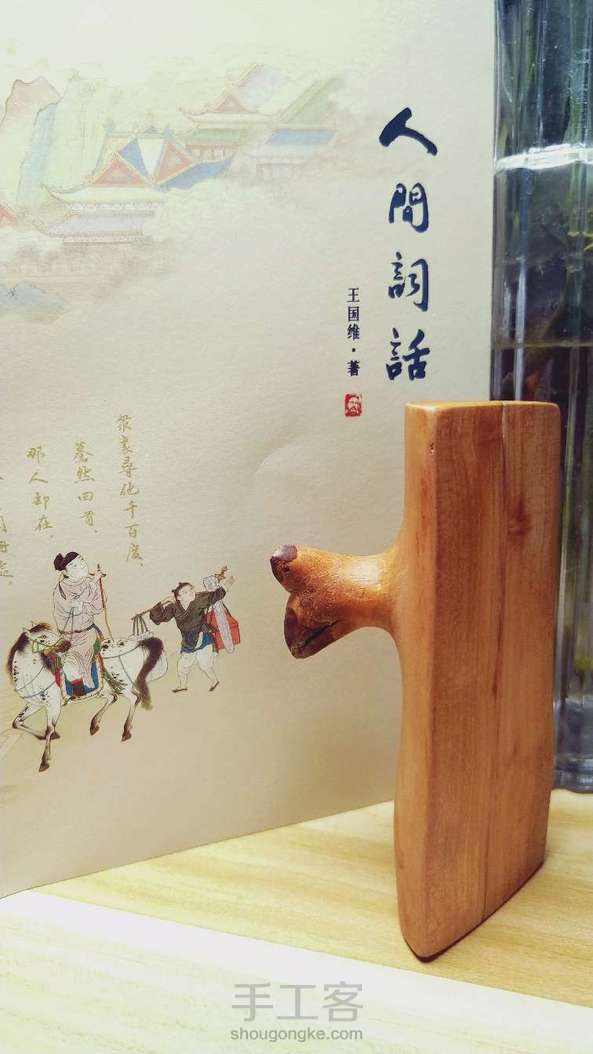 人間詞話
王国维·著
眾裏尋他千百度,
驀然回首,
那人却在,
手工客
shougongke.com